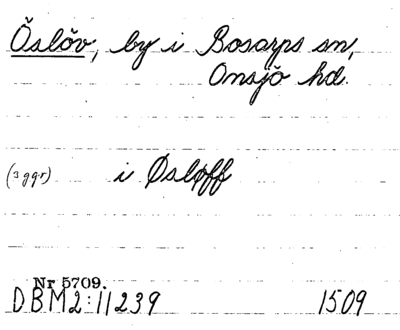 Öslöv, by i Bosarps sn,
Onsjö hd.
(3 ggr) i Øsløff
Nr 5709.
DBM2:11239 1509